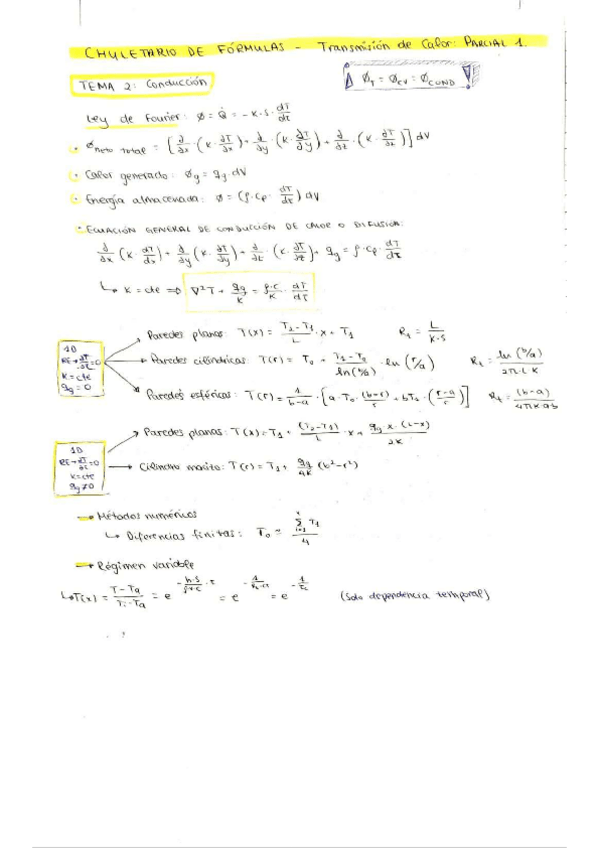 CHULETARIO DE FÓRMULAS - Transmisión de Calor: PARCIAL 1.
TEMA 2: Conducción
Ø_T = Ø_CV = Ø_COND
Ley de Fourier: Ø = Q̇ = -K·S·dT/dt
Ø neto total = [∂/∂x·(K·∂T/∂x) + ∂/∂y·(K·∂T/∂y) + ∂/∂z·(K·∂T/∂z)] dV
Calor generado: Øg = qg·dV
Energía almacenada: Ø = (ρ·Cp·dT/dτ) dV
ECUACIÓN GENERAL DE CONDUCCIÓN DE CALOR O DIFUSIÓN:
∂/∂x (K·dT/dx) + ∂/∂y (K·∂T/∂y) + ∂/∂z·(K·∂T/∂z) + qg = ρ·Cp·dT/dτ
↳ K = cte ⇒ ∇²T + qg/K = ρ·C/K · dT/dτ
1D
RE → ∂T/∂τ = 0
K = cte
qg = 0
Paredes planas: T(x) = (T2-T1)/L · x + T1 R_t = L/(K·S)
Paredes cilíndricas: T(r) = T0 + (T1-T0)/ln(b/a) · ln(r/a) R_t = ln(b/a)/(2π·L·K)
Paredes esféricas: T(r) = 1/(b-a) · [a·T0·(b-r)/r + bT0·(r-a)/r] R_t = (b-a)/(4πKab)
1D
RE → ∂T/∂τ = 0
K = cte
qg ≠ 0
Paredes planas: T(x) = T1 + (T2-T1)/L · x + qg·x·(L-x)/2K
Cilindro macizo: T(r) = T1 + qg/4K (b²-r²)
→ Métodos numéricos
↳ Diferencias finitas: T0 = Σ T1/4
→ Régimen variable
↳ T(x) = (T-Ta)/(Ti-Ta) = e = e = e (Solo dependencia temporal)